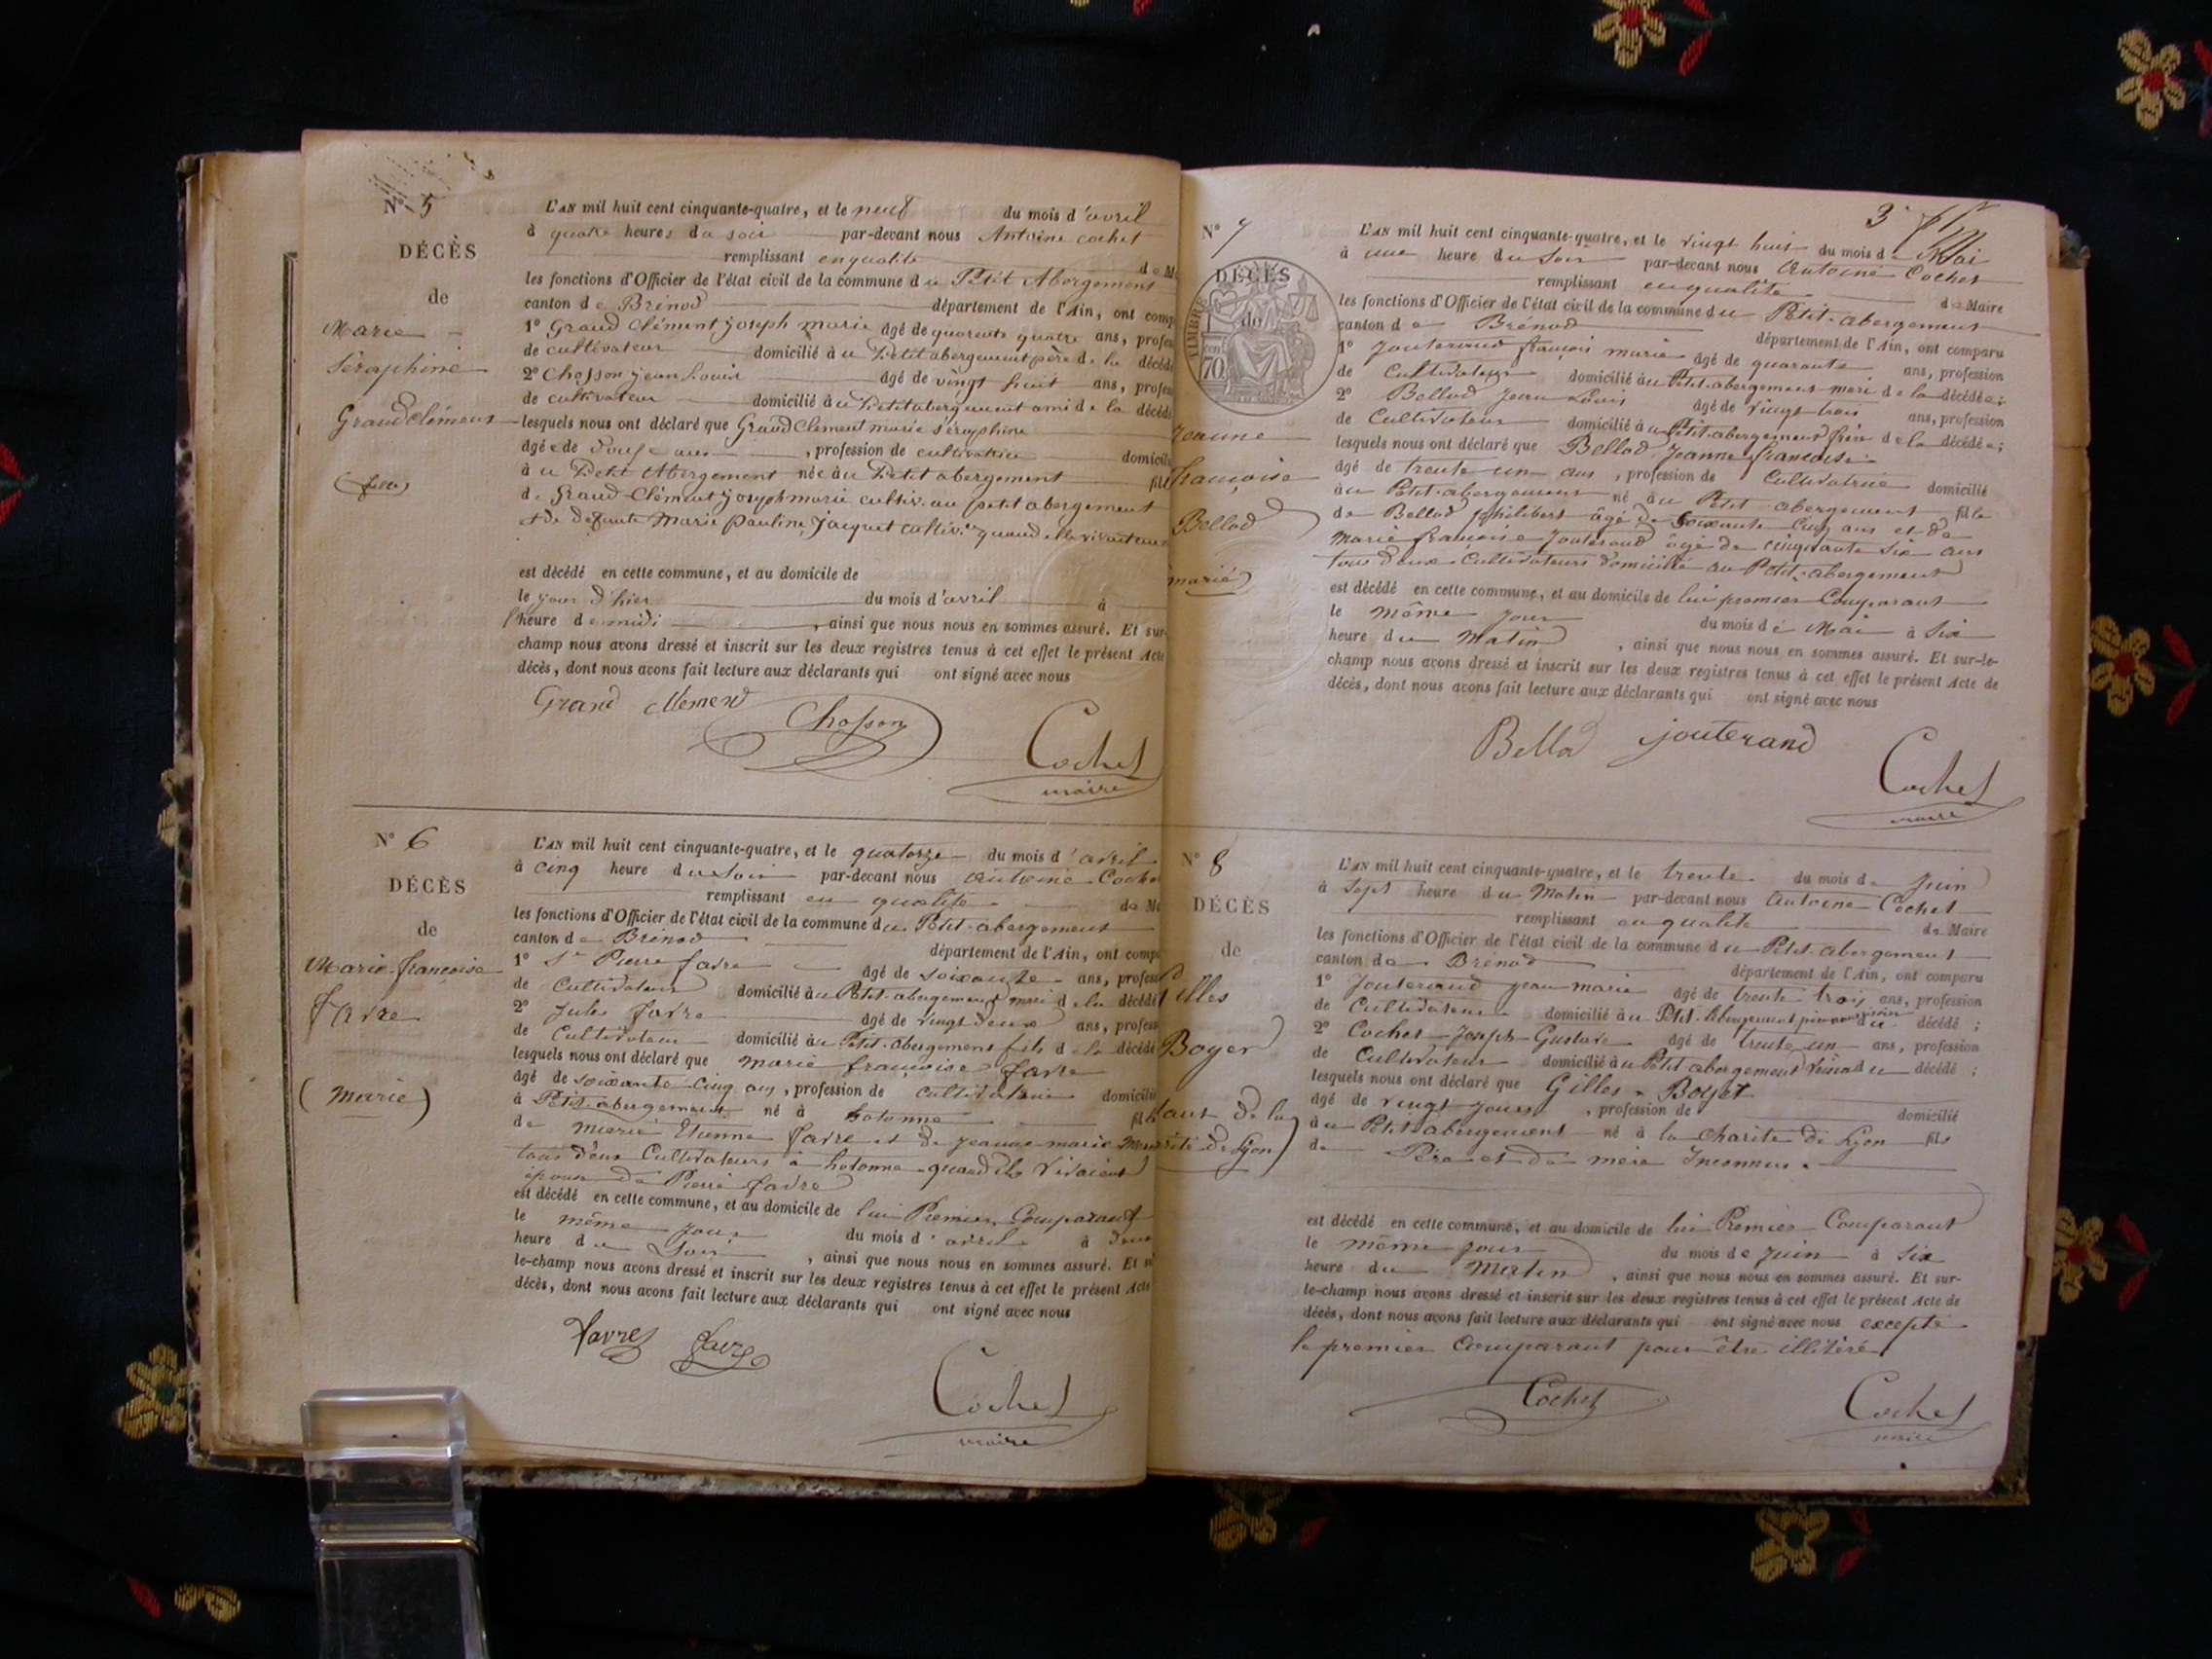 N° 5
DÉCÈS
de
Marie
Séraphine
Grandclément
L'AN mil huit cent cinquante-quatre, et le neuf du mois d'avril
à quatre heures du soir par-devant nous Antoine Cochet
remplissant en qualité de M
les fonctions d'Officier de l'état civil de la commune du Petit Abergement
canton de Brénod département de l'Ain, ont comp
1° Grand Clément joseph marie âgé de quarante quatre ans, profes
de cultivateur domicilié au Petit abergement père de la décédé
2° Chosson jean Louis âgé de vingt huit ans, profes
de cultivateur domicilié au Petit abergement ami de la décédé
lesquels nous ont déclaré que Grand Clément marie séraphine
âgée de douze ans, profession de cultivatrice domicili
à u Petit Abergement née àu Petit abergement fill
de Grand-Clément joseph marie cultiv. au petit abergement
et de défunte Marie pauline Jacquet cultiv. quand elle vivait
est décédé en cette commune, et au domicile de
le jour d'hier du mois d'avril à
l'heure de midi, ainsi que nous nous en sommes assuré. Et sur
champ nous avons dressé et inscrit sur les deux registres tenus à cet effet le présent Acte
décès, dont nous avons fait lecture aux déclarants qui ont signé avec nous
Grand Clement Chosson Cochet
maire
N° 6
DÉCÈS
de
Marie françoise
favre
(Marie)
L'AN mil huit cent cinquante-quatre, et le quatorze du mois d'avril
à cinq heure du soir par-devant nous Antoine Coche
remplissant en qualité de M
les fonctions d'Officier de l'état civil de la commune du Petit-abergement
canton de Brénod département de l'Ain, ont comp
1° Sr Pierre favre âgé de soixante ans, profess
de Cultivateur domicilié àu Petit-abergement mari de la décédé
2° Jules favre âgé de vingt deux ans, profess
de Cultivateur domicilié àu Petit-abergement fils de la décédé
lesquels nous ont déclaré que marie françoise favre
âgé de soixante-cinq ans, profession de cultivatrice domicilié
à Petit-abergement né à hotonne fille
de marie Etienne favre et de jeanne-marie
tous deux Cultivateurs à hotonne quand ils vivaient
épouse de Pierre favre
est décédé en cette commune, et au domicile de lui Premier Comparant
le même jour du mois d'avril à deux
heure du soir, ainsi que nous nous en sommes assuré. Et
le-champ nous avons dressé et inscrit sur les deux registres tenus à cet effet le présent Acte
décès, dont nous avons fait lecture aux déclarants qui ont signé avec nous
favre favre
Cochet
maire
3
N° 7
DÉCÈS
de
TIMBRE
70
Jeanne
françoise
Bellod
mariée
L'AN mil huit cent cinquante-quatre, et le vingt huit du mois de Mai
à une heure du soir par-devant nous Antoine Cochet
remplissant en qualité de Maire
les fonctions d'Officier de l'état civil de la commune du Petit-abergement
canton de Brénod département de l'Ain, ont comparu
1° Jouterand françois marie âgé de quarante ans, profession
de Cultivateur domicilié àu Petit-abergement mari de la décédée;
2° Bellod Jean Louis âgé de vingt trois ans, profession
de Cultivateur domicilié àu Petit-abergement frère de la décédée;
lesquels nous ont déclaré que Bellod Jeanne françoise
âgé de trente un ans, profession de Cultivatrice domicilié
àu Petit-abergement né àu Petit abergement fille
de Bellod philibert âgé de soixante cinq ans et de
Marie françoise Jouterand âgé de cinquante six ans
tous deux Cultivateurs domicilié au Petit-abergement
est décédé en cette commune, et au domicile de lui premier Comparant
le même jour du mois de Mai à six
heure du Matin, ainsi que nous nous en sommes assuré. Et sur-le-
champ nous avons dressé et inscrit sur les deux registres tenus à cet effet le présent Acte de
décès, dont nous avons fait lecture aux déclarants qui ont signé avec nous
Bellod jouterand Cochet
maire
N° 8
DÉCÈS
de
Gilles
Boyer
de la
de Lyon)
L'AN mil huit cent cinquante-quatre, et le trente du mois de Juin
à sept heure du Matin par-devant nous Antoine Cochet
remplissant en qualité de Maire
les fonctions d'Officier de l'état civil de la commune du Petit-abergement
canton de Brénod département de l'Ain, ont comparu
1° Jouterand jean marie âgé de trente trois ans, profession
de Cultivateur domicilié àu Petit-abergement du décédé;
2° Cochet Joseph Gustave âgé de trente un ans, profession
de Cultivateur domicilié àu Petit abergement voisin du décédé;
lesquels nous ont déclaré que Gilles Boyet
âgé de vingt jours, profession de domicilié
àu Petit abergement né à la Charité de Lyon fils
de Père et de mère Inconnus.
est décédé en cette commune, et au domicile de lui Premier Comparant
le même jour du mois de Juin à six
heure du Matin, ainsi que nous nous en sommes assuré. Et sur-
le-champ nous avons dressé et inscrit sur les deux registres tenus à cet effet le présent Acte de
décès, dont nous avons fait lecture aux déclarants qui ont signé avec nous excepté
le premier Comparant pour être illitéré
Cochet Cochet
maire